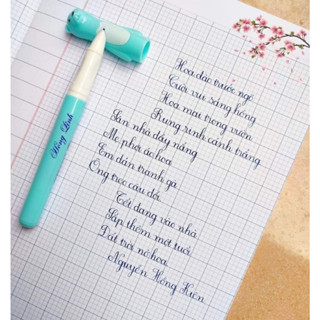 Hoa đào trước ngõ
Cười vui sáng hồng
Hoa mai trong vườn
Rung rinh cánh trắng
Sân nhà đầy nắng
Mẹ phơi áo hoa
Em dán tranh gà
Ông treo câu đối
Tết đang vào nhà
Sắp thêm một tuổi
Đất trời nở hoa
Nguyễn Hồng Kiên
Hồng Linh